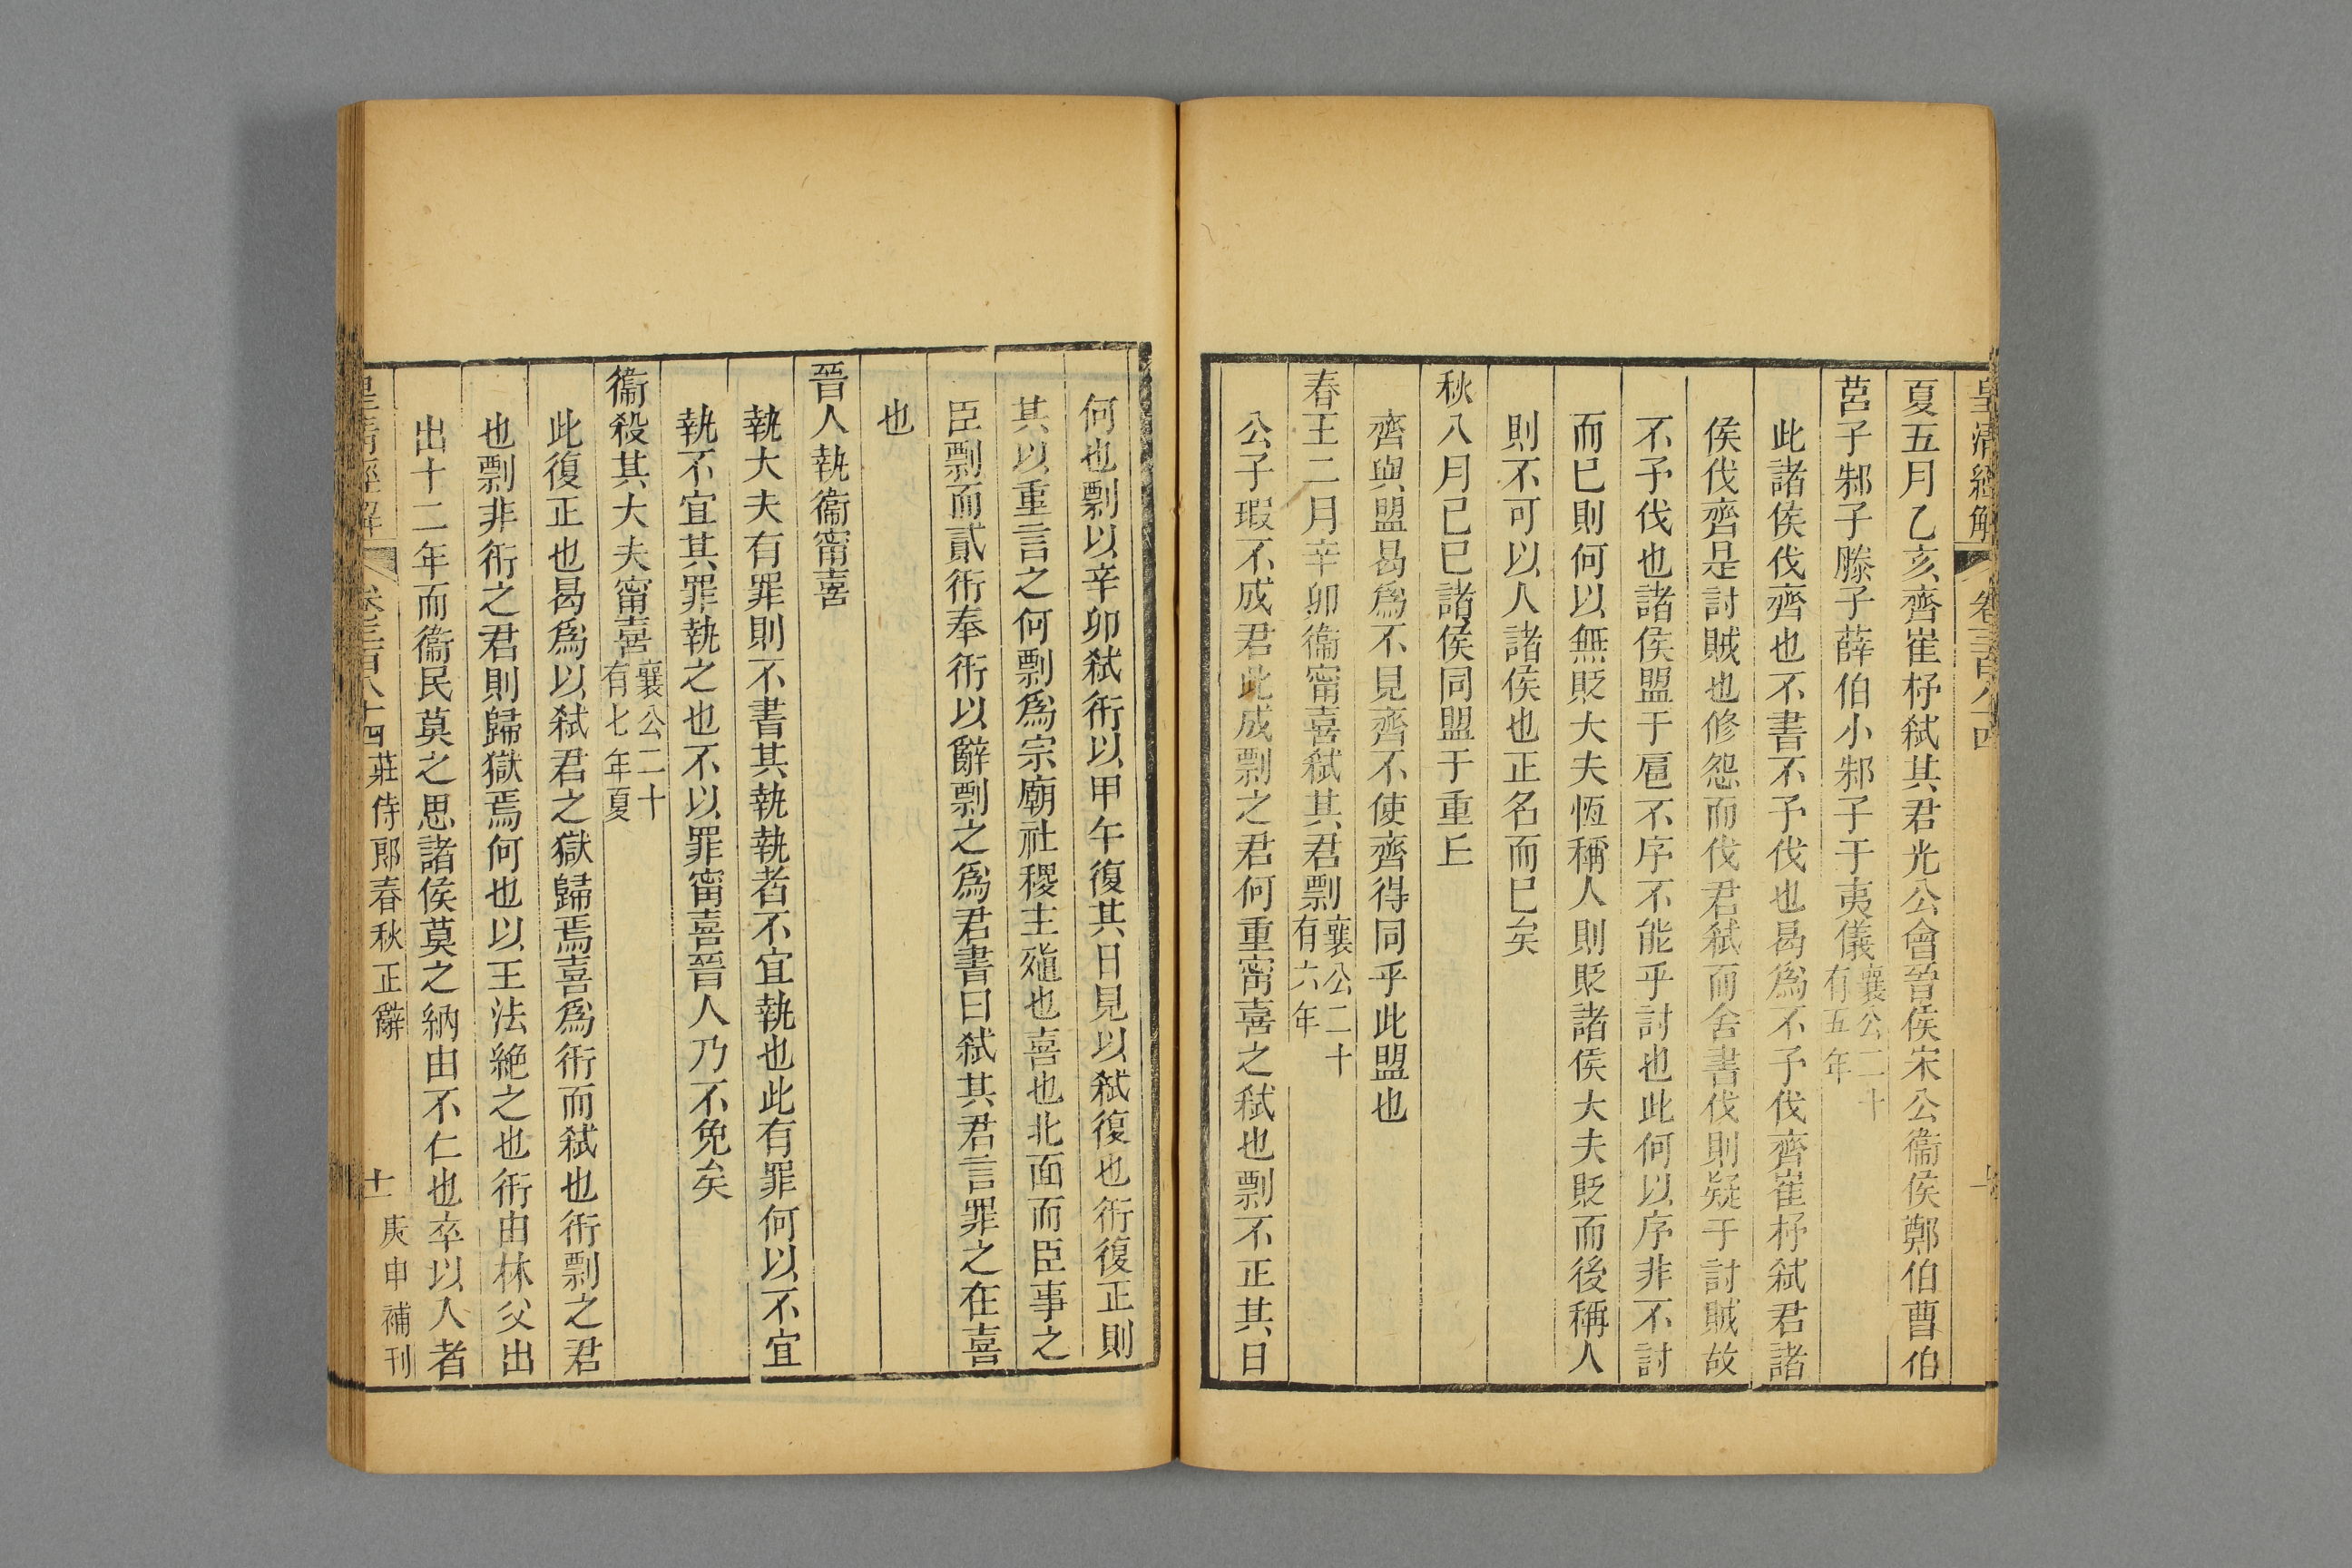 皇清經解 卷三百八十四
夏五月乙亥齊崔杼弑其君光公會晉侯宋公衞侯鄭伯曹伯
莒子邾子滕子薛伯小邾子于夷儀襄公二十有五年
此諸侯伐齊也不書不予伐也曷爲不予伐齊崔杼弑君諸
侯伐齊是討賊也修怨而伐君弑而舍書伐則疑于討賊故
不予伐也諸侯盟于扈不序不能乎討也此何以序非不討
而已則何以無貶大夫恆稱人則貶諸侯大夫貶而後稱人
則不可以人諸侯也正名而已矣
秋八月己巳諸侯同盟于重丘
齊與盟曷爲不見齊不使齊得同乎此盟也
春王二月辛卯衞甯喜弑其君剽襄公二十有六年
公子瑕不成君此成剽之君何重甯喜之弑也剽不正其日
何也剽以辛卯弑衎以甲午復其日見以弑復也衎復正則
其以重言之何剽爲宗廟社稷主殖也喜也北面而臣事之
臣剽而貳衎奉衎以辭剽之爲君書曰弑其君言罪之在喜
也
晉人執衞甯喜
執大夫有罪則不書其執執者不宜執也此有罪何以不宜
執不宜其罪執之也不以罪甯喜晉人乃不免矣
衞殺其大夫甯喜襄公二十有七年夏
此復正也曷爲以弑君之獄歸焉喜爲衎而弑也衎剽之君
也剽非衎之君則歸獄焉何也以王法絕之也衎由林父出
出十二年而衞民莫之思諸侯莫之納由不仁也卒以人者
皇清經解 卷三百八十四 莊侍郎春秋正辭 十一 庚申補刊